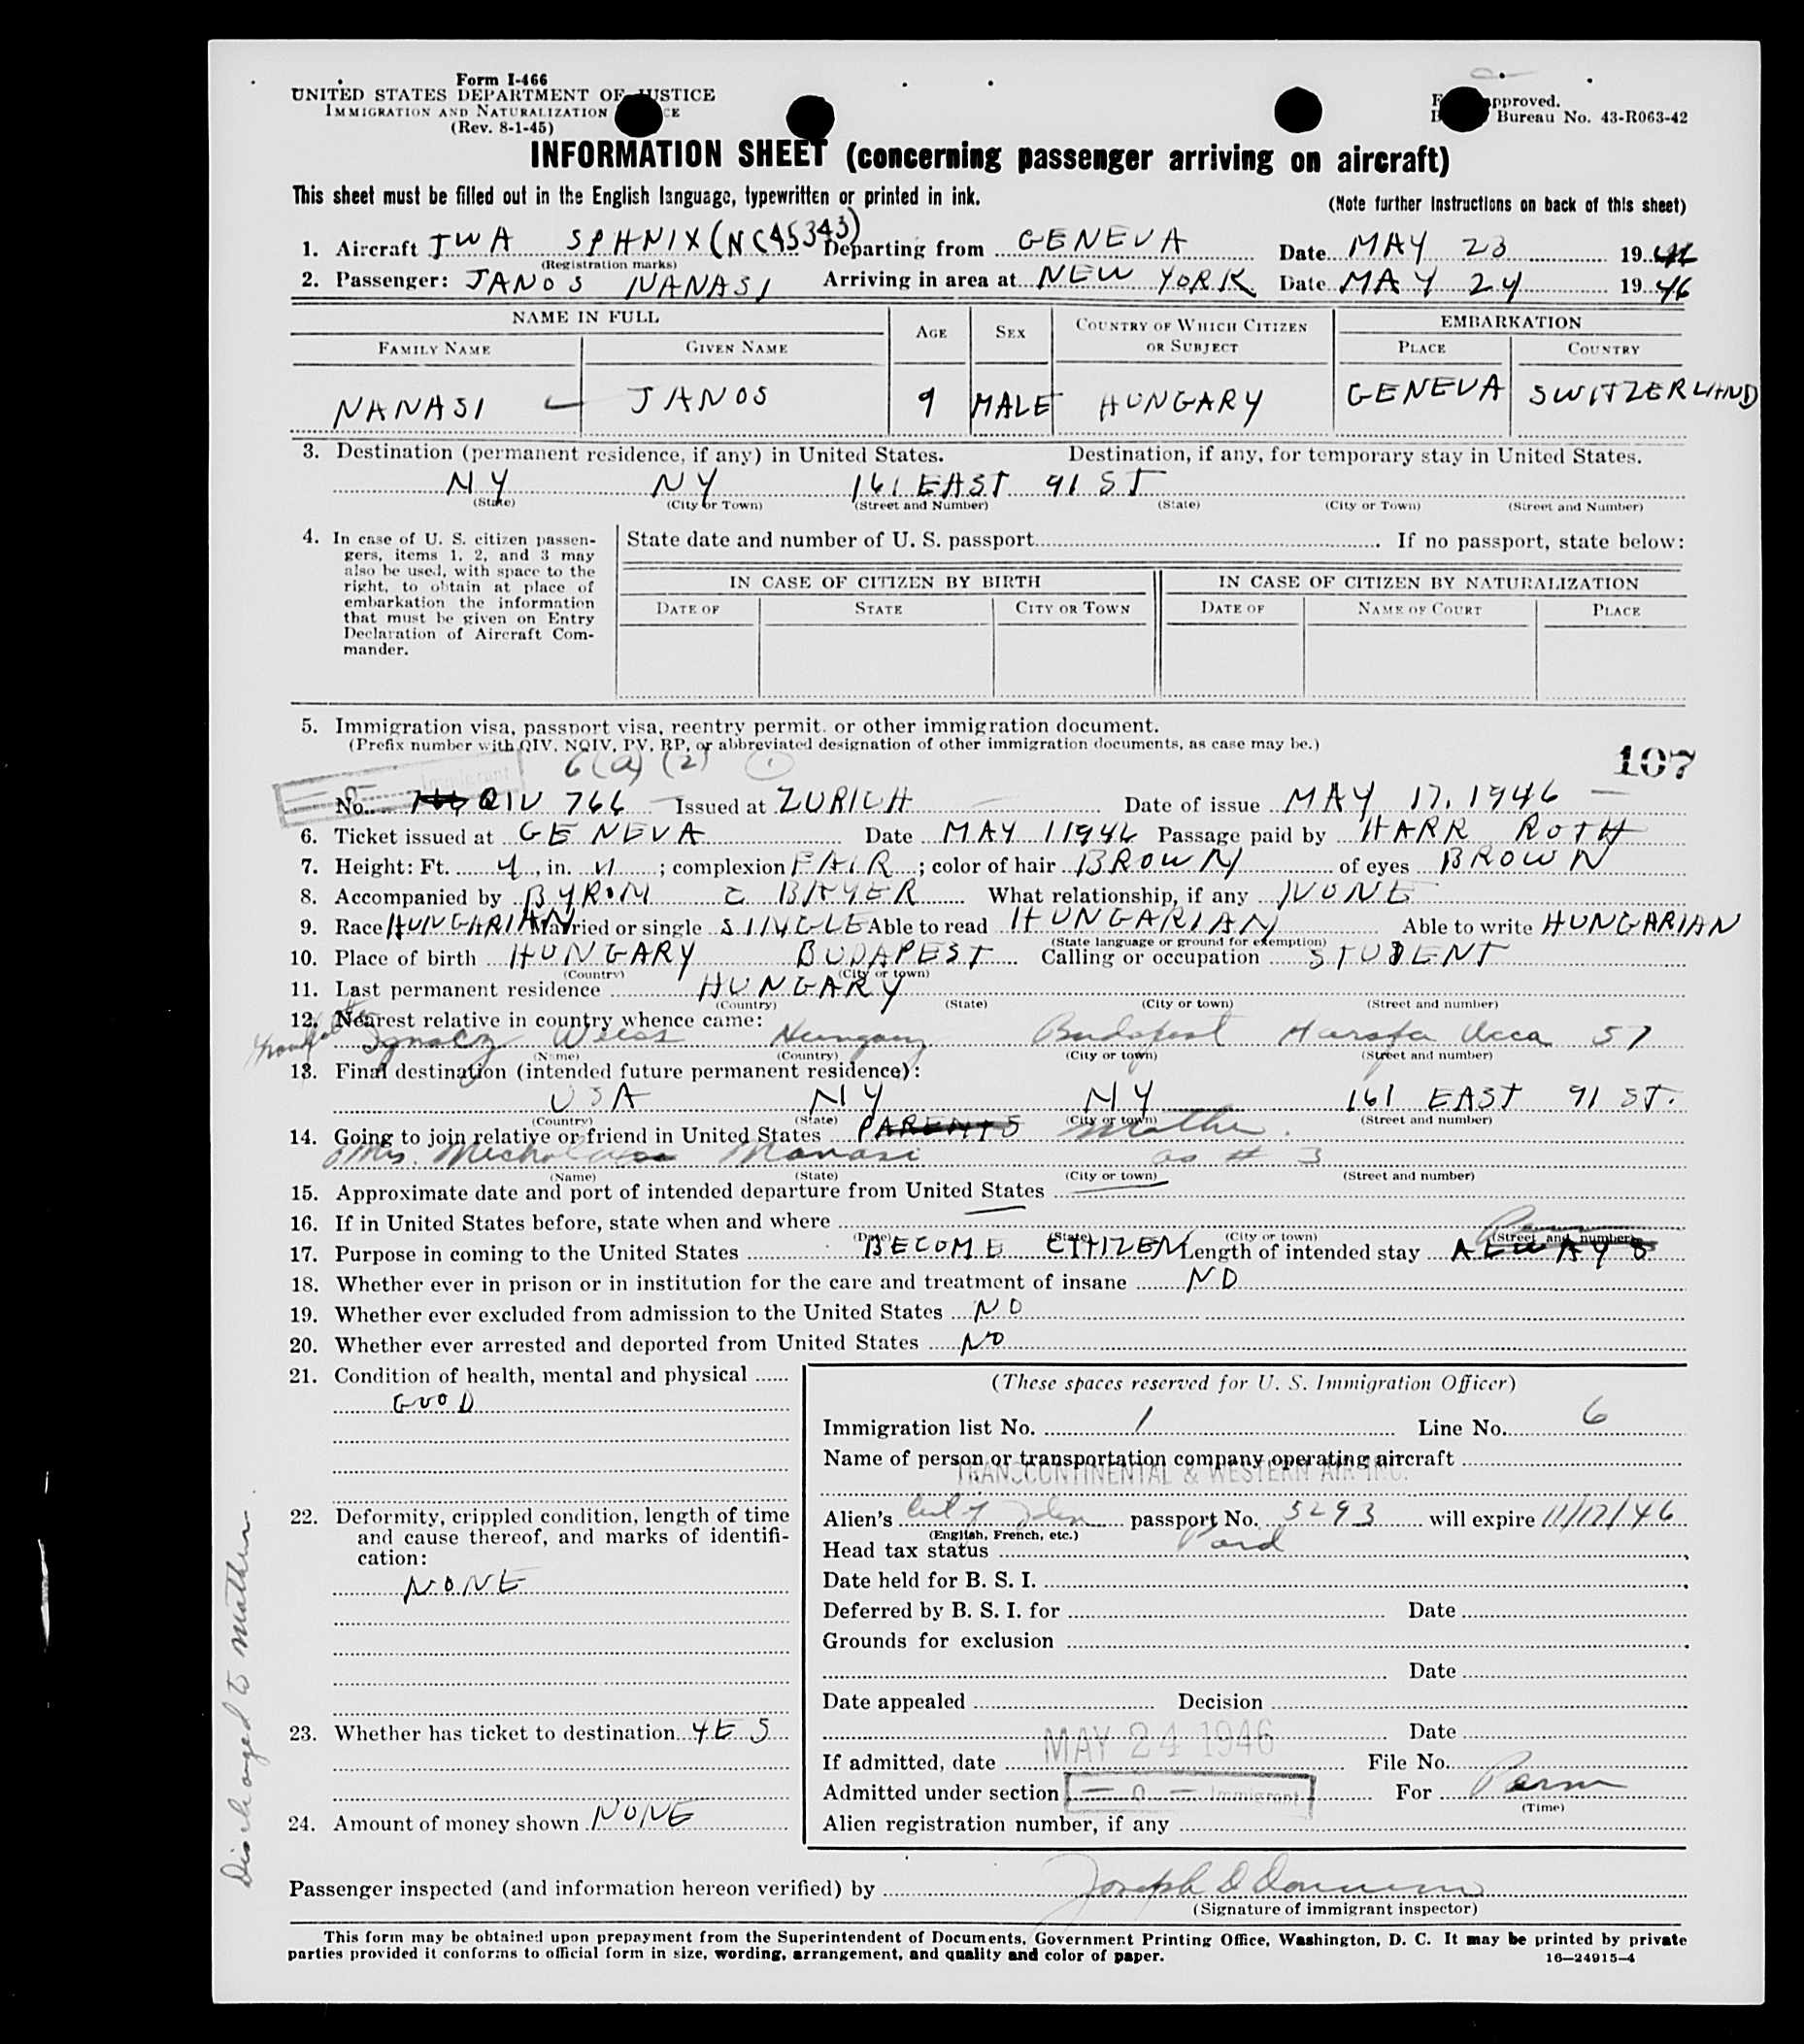 Form I-466
UNITED STATES DEPARTMENT OF JUSTICE
IMMIGRATION AND NATURALIZATION
(Rev. 8-1-45)
approved.
Bureau No. 43-R063-42
INFORMATION SHEET (concerning passenger arriving on aircraft)
This sheet must be filled out in the English language, typewritten or printed in ink.
(Note further instructions on back of this sheet)
1. Aircraft TWA SPHNIX (NC45343) Departing from GENEVA Date MAY 23 19
(Registration marks)
2. Passenger: JANOS NANASI Arriving in area at NEW YORK Date MAY 24 1946
NAME IN FULL AGE SEX COUNTRY OF WHICH CITIZEN OR SUBJECT EMBARKATION
FAMILY NAME GIVEN NAME PLACE COUNTRY
NANASI JANOS 9 MALE HUNGARY GENEVA SWITZERLAND
3. Destination (permanent residence, if any) in United States. Destination, if any, for temporary stay in United States.
NY NY 161 EAST 91 ST
(State) (City or Town) (Street and Number) (State) (City or Town) (Street and Number)
4. In case of U. S. citizen passen-
gers, items 1, 2, and 3 may
also be used, with space to the
right, to obtain at place of
embarkation the information
that must be given on Entry
Declaration of Aircraft Com-
mander.
State date and number of U. S. passport If no passport, state below:
IN CASE OF CITIZEN BY BIRTH IN CASE OF CITIZEN BY NATURALIZATION
DATE OF STATE CITY OR TOWN DATE OF NAME OF COURT PLACE
5. Immigration visa, passport visa, reentry permit, or other immigration document.
(Prefix number with QIV, NQIV, PV, RP, or abbreviated designation of other immigration documents, as case may be.)
6(a)(2) 1
107
Immigrant
No. QIV 766 Issued at ZURICH Date of issue MAY 17, 1946
6. Ticket issued at GENEVA Date MAY 1 1946 Passage paid by HARR ROTH
7. Height: Ft. 4, in. 11; complexion FAIR; color of hair BROWN of eyes BROWN
8. Accompanied by BYRON C BAYER What relationship, if any NONE
9. Race HUNGARIAN Married or single SINGLE Able to read HUNGARIAN Able to write HUNGARIAN
(State language or ground for exemption)
10. Place of birth HUNGARY BUDAPEST Calling or occupation STUDENT
(Country) (City or town)
11. Last permanent residence HUNGARY
(Country) (State) (City or town) (Street and number)
12. Nearest relative in country whence came:
Ignacz Weiss Hungary Budapest Harsfa Ucca 57
(Name) (Country) (City or town) (Street and number)
13. Final destination (intended future permanent residence):
USA NY NY 161 EAST 91 ST.
(Country) (State) (City or town) (Street and number)
14. Going to join relative or friend in United States PARENTS Mother.
Mrs. Nanasi as # 3
(Name) (State) (City or town) (Street and number)
15. Approximate date and port of intended departure from United States
16. If in United States before, state when and where
(Date) (State) (City or town) (Street and number)
17. Purpose in coming to the United States BECOME CITIZEN Length of intended stay ALWAYS
18. Whether ever in prison or in institution for the care and treatment of insane NO
19. Whether ever excluded from admission to the United States NO
20. Whether ever arrested and deported from United States NO
21. Condition of health, mental and physical
GOOD
22. Deformity, crippled condition, length of time
and cause thereof, and marks of identifi-
cation:
NONE
23. Whether has ticket to destination YES
24. Amount of money shown NONE
(These spaces reserved for U. S. Immigration Officer)
Immigration list No. 1 Line No. 6
Name of person or transportation company operating aircraft
TRANSCONTINENTAL & WESTERN AIR INC.
Alien's passport No. 5293 will expire 11/17/46
(English, French, etc.)
Head tax status Paid
Date held for B. S. I.
Deferred by B. S. I. for Date
Grounds for exclusion
Date
Date appealed Decision
Date
If admitted, date MAY 24 1946 File No.
Admitted under section Immigrant For Perm
(Time)
Alien registration number, if any
Discharged to Mother
Passenger inspected (and information hereon verified) by Joseph D
(Signature of immigrant inspector)
This form may be obtained upon prepayment from the Superintendent of Documents, Government Printing Office, Washington, D. C. It may be printed by private
parties provided it conforms to official form in size, wording, arrangement, and quality and color of paper. 16—24915-4